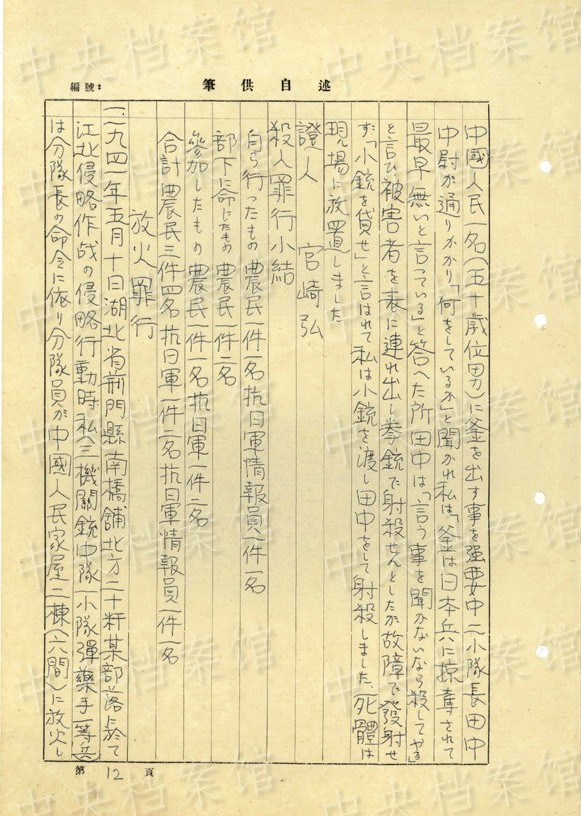 編號：
述自供筆
中國人民一名(五十歳位男)に釜を出す事を強要中二小隊長田中
中尉が通りかかり「何をしているか」と聞かれ私は、「釜は日本兵に掠奪されて
最早無いと言っている」と答へた所田中は「言う事を聞かないなら殺してやる」
と言ひ被害者を表に連れ出し拳銃で射殺せんとしたが故障で發射せ
ず「小銃を貸せ」と言はれて私は小銃を渡し田中をして射殺しました、死體は
現場に放置しました
證人 宮崎弘
殺人罪行小結
自ら行ったもの農民一件一名抗日軍情報員一件一名
部下に命じたもの農民一件二名
參加したもの農民一件一名抗日軍一件二名
合計農民三件四名抗日軍一件二名抗日軍情報員一件一名
放火罪行
一、一九四一年五月十日湖北省荊門縣南橋舖北方二十粁某部落に於て
江北侵略作战の侵略行動時私(三機關銃中隊一小隊彈藥手一等兵)
は分隊長の命令に依り分隊員が中國人民家屋二棟(六間)に放火し
第12頁
中央档案馆